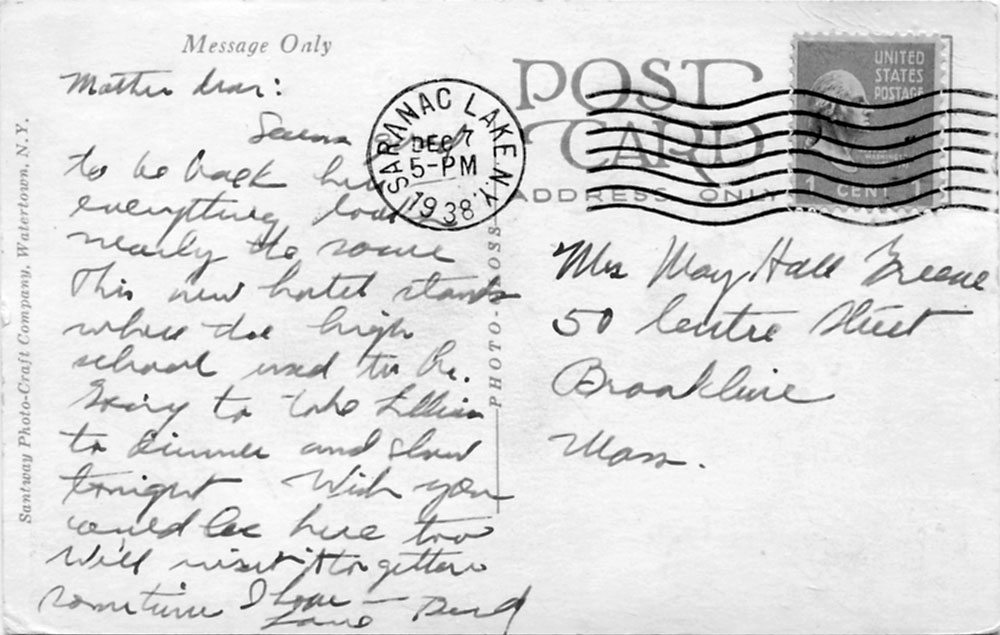 Message Only
Mother dear:
Seems
to be back here
everything looks
nearly the same
This new hotel stands
where the high
school used to be.
Going to take Lillian
to dinner and show
tonight Wish you
could be here too
Will visit it together
sometime I hope —
Love
SARANAC LAKE N.Y.
DEC 7
5-PM
1938
POST
CARD
ADDRESS ONLY
UNITED
STATES
POSTAGE
WASHINGTON
1 CENT 1
Mrs May Hall Greene
50 Centre Street
Brookline
Mass.
Santway Photo-Craft Company, Watertown, N. Y.